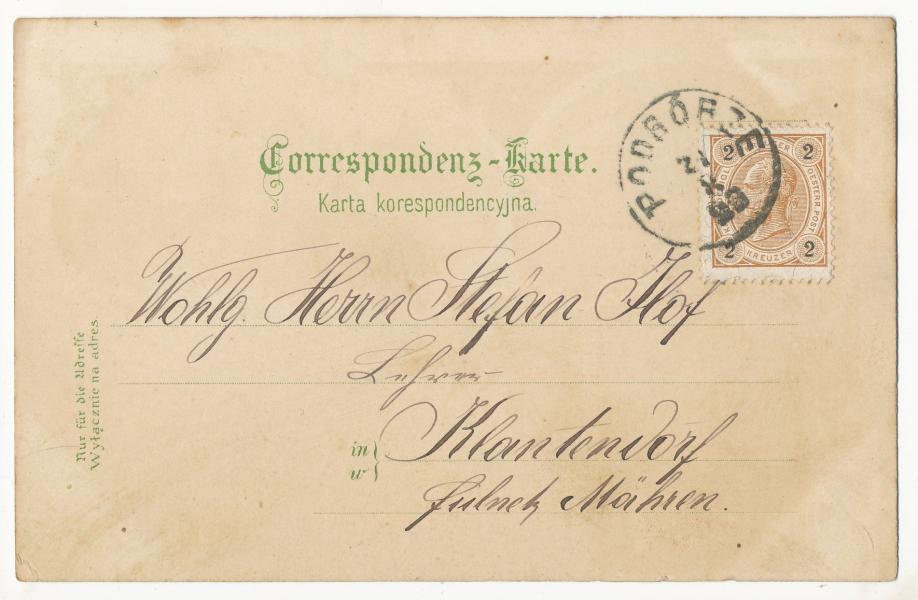 Correspondenz-Karte.
Karta korespondencyjna.
PODGÓRZE
2 2
KREUZER
OESTERR. POST
2 2
Wohlg. Herrn Stefan Ilof
Lehrer
in
w
Klantendorf
Fulnek Mähren.
Nur für die Adresse
Wyłącznie na adres.